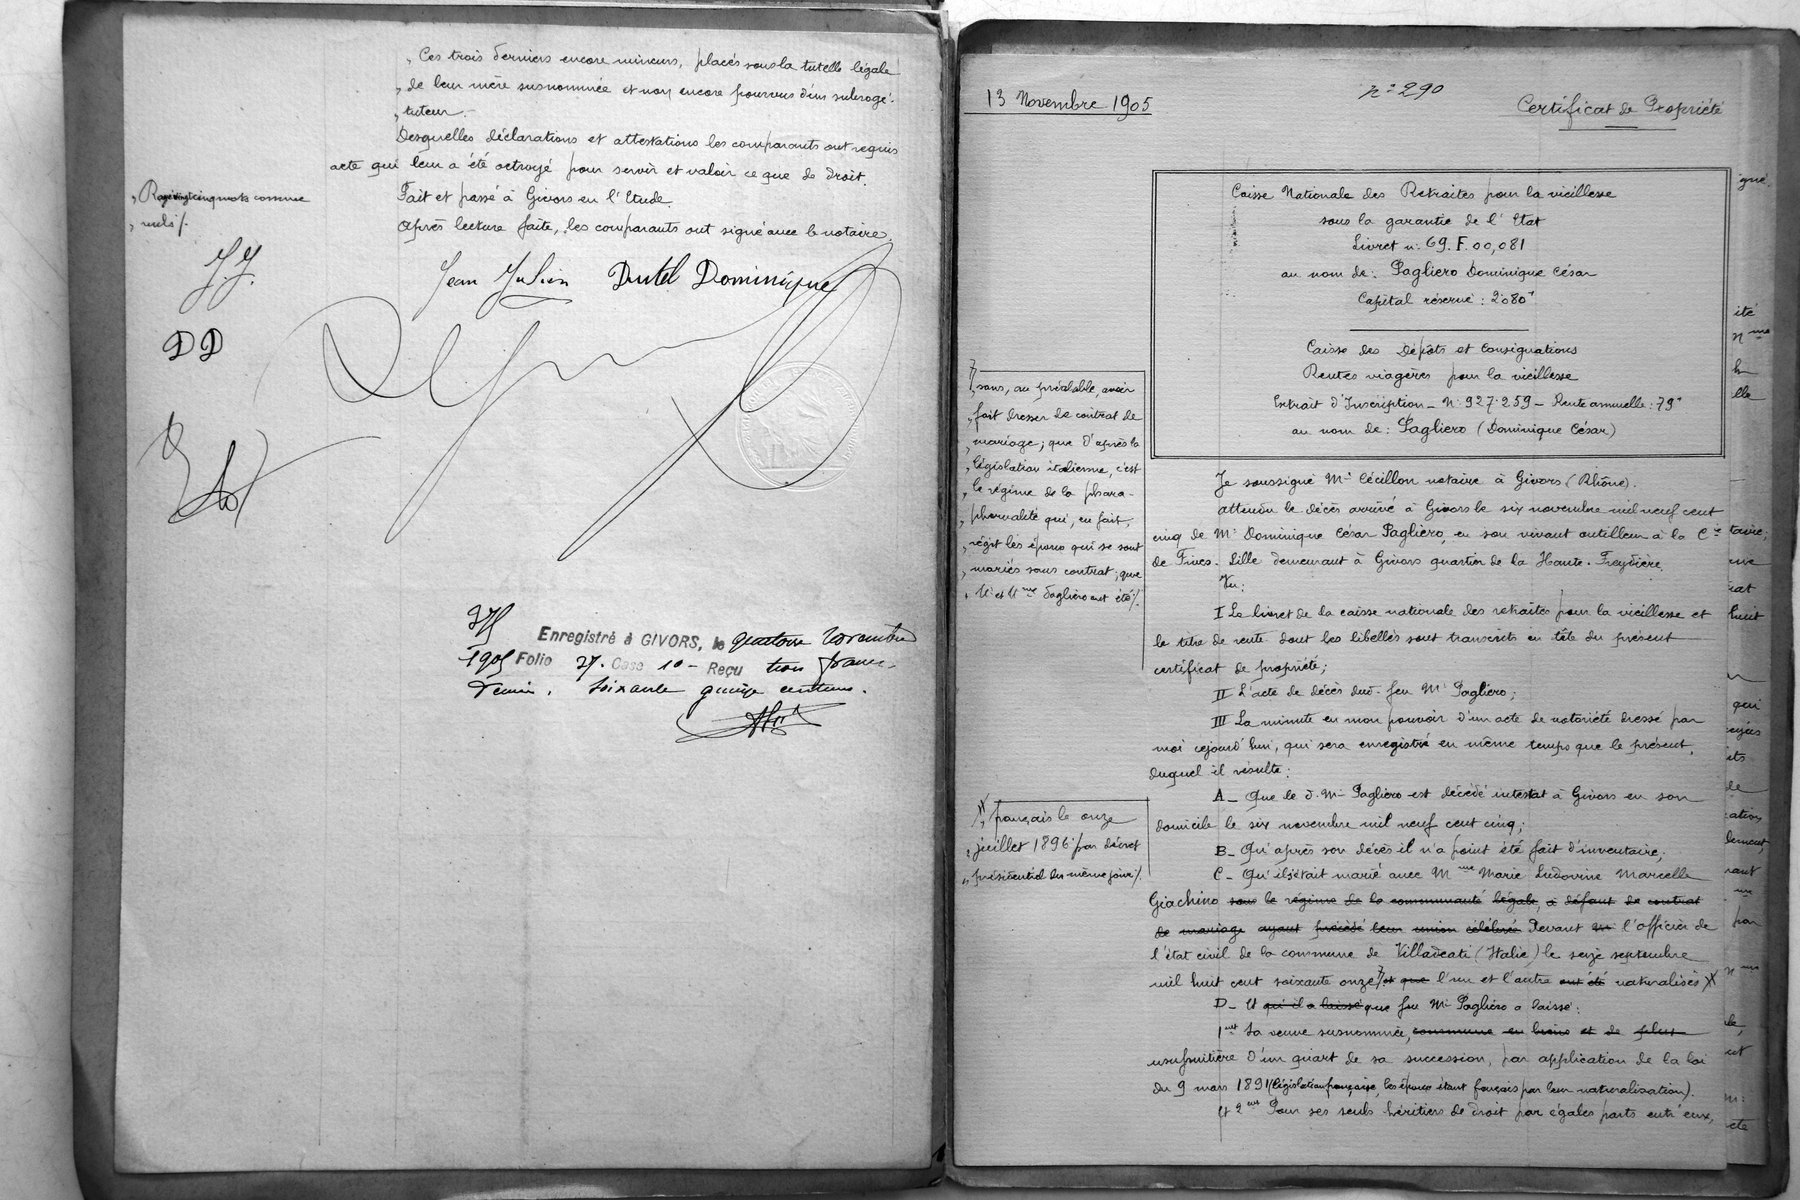 „ Ces trois derniers encore mineurs, placés sous la tutelle légale
„ de leur mère susnommée et non encore pourvus d'un subrogé-
„ tuteur.
Desquelles déclarations et attestations les comparants ont requis
acte qui leur a été octroyé pour servir et valoir ce que de droit.
Fait et passé à Givors en l'Etude.
Après lecture faite, les comparants ont signé avec le notaire.
„ Rayé vingt cinq mots comme
„ nuls /.
J.J.
DD
Jean Julien Dutel Dominique
Enregistré à GIVORS, le quatorze novembre
1905 Folio 27. Case 10 - Reçu trois francs
Décimes. soixante quinze centimes.
13 Novembre 1905
nº 290
Certificat de Propriété
Caisse Nationale des Retraites pour la vieillesse
sous la garantie de l'Etat
Livret n: 69.F.00,081
au nom de: Pagliero Dominique César
Capital réservé: 2080f
Caisse des Dépôts et Consignations
Rentes viagères pour la vieillesse
Extrait d'Inscription - N: 927.259 - Rente annuelle: 79f
au nom de: Pagliero (Dominique César)
Je soussigné Me Cécillon notaire à Givors (Rhône).
attendu le décès arrivé à Givors le six novembre mil neuf cent
cinq de Mr Dominique César Pagliero, en son vivant outilleur à la Cie
de Fives-Lille demeurant à Givors quartier de la Haute-Freydière
Vu:
I Le livret de la caisse nationale des retraites pour la vieillesse et
le titre de rente dont les libellés sont transcrits en tête du présent
certificat de propriété;
II L'acte de décès dud. feu Mr Pagliero;
III La minute en mon pouvoir d'un acte de notoriété dressé par
moi cejourd'hui, qui sera enregistré en même temps que le présent,
duquel il résulte:
A_ Que le d. Mr Pagliero est décédé intestat à Givors en son
domicile le six novembre mil neuf cent cinq;
B_ Qu'après son décès il n'a point été fait d'inventaire;
C_ Qu'il s'était marié avec Mme Marie Ludovine Marcelle
Giachino sous le régime de la communauté légale, à défaut de contrat
de mariage ayant précédé leur union célébrée devant l'officier de
l'état civil de la commune de Villadeati (Italie) le seize septembre
mil huit cent soixante onze et que l'un et l'autre ont été naturalisés
D_ Et qu'il a laissé que feu Mr Pagliero a laissé:
1ent Sa veuve susnommée, commune en biens et de plus
usufruitière d'un quart de sa succession, par application de la loi
du 9 mars 1891 (législation française, les époux étant français par leur naturalisation).
Et 2ent Pour ses seuls héritiers de droit par égales parts entr'eux,
„ sans, au préalable, avoir
„ fait dresser de contrat de
„ mariage; que d'après la
„ législation italienne, c'est
„ le régime de la para-
„ phernalité qui, en fait,
„ régit les époux qui se sont
„ mariés sans contrat; que
„ Mr et Mme Pagliero ont été /.
„ français le onze
„ juillet 1896 par décret
„ présidentiel du même jour /.